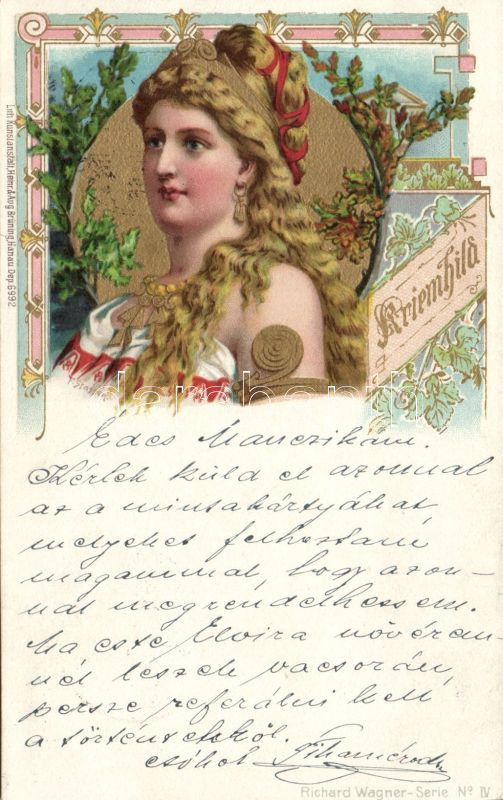 Lith. Kunstanstalt, Heinr. & Aug. Brüning, Hanau Dep. 6992
Kriemhild
Edes Manczikám.
Kérlek küld el azonnal
az a mintakártyákat
melyeket felhoztam
magammal, hogy azon-
nal megrendelhessem.
Ma este Elvira nővérem-
nél leszek vacsorán,
persze referálni kell
a történtekről.
csókol
Richard Wagner-Serie No IV